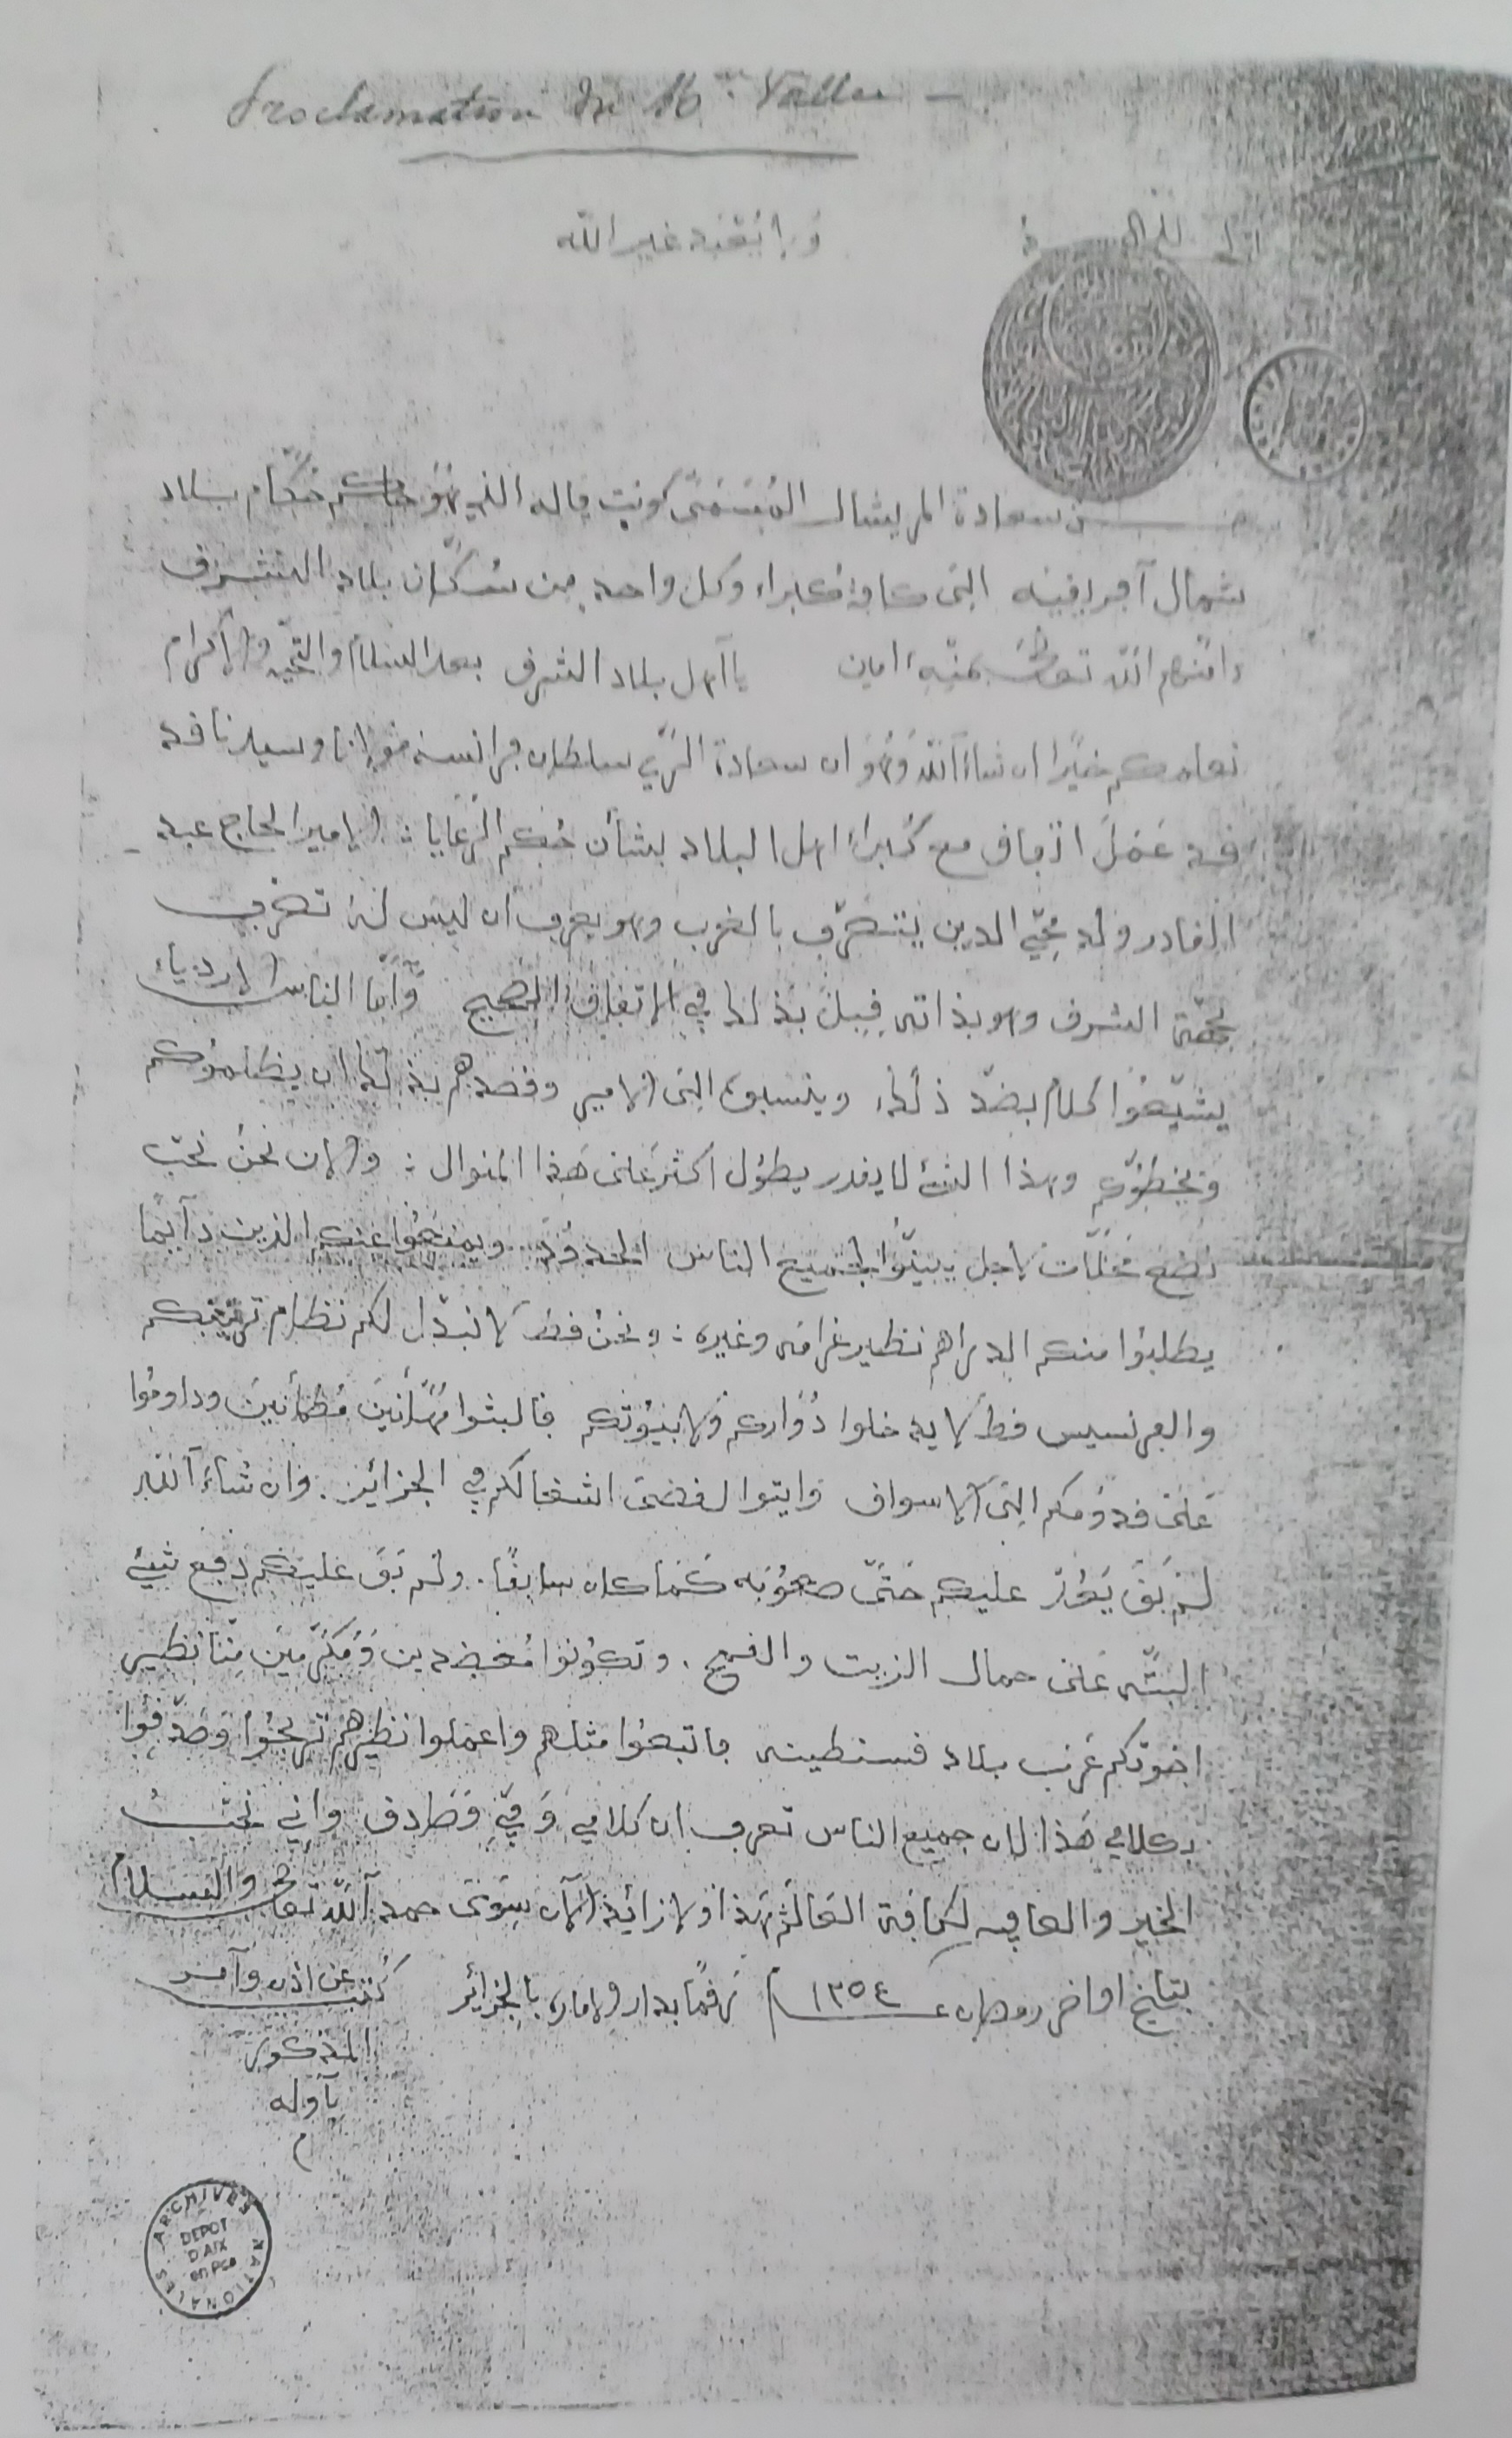 Proclamation du M. Vallée
ولا يعبد غير الله
من سعادة المريشال المسمى كونت واله الذي هو حاكم حكام بلاد
شمال آفريقيه الى كافة كبراء وكل واحد من سكان بلاد الشرق
امنهم الله تعالى بمنه امين يا آهل بلاد الشرق بعد السلام والتحيه والاكرام
نعلمكم خيرًا ان شاء الله وهو ان سعادة الري سلطان فرانسه مولانا وسيدنا قد
قد عمل اتفاق مع كبراء اهل البلاد بشأن حكم الرعايا : الامير الحاج عبد
القادر ولد محي الدين يتصرّف بالغرب وهو يعرف ان ليس له تصرف
بجهة الشرق وهو بذاته قبل بذلك في الاتفاق الصحيح وآمّا الناس الاردياء
يشيّعوا كلام بضدّ ذلك وينسبوه الى الامير وقصدهم بذلك ان يظلموكم
وهذا الشئ لا يقدر يطول اكثر على هذا المنوال : والان نحن نحب
نضع محلّات لاجل يبيّنوا لجميع الناس الحدود ويمنعوا عنكم الذين دآيمًا
يطلبوا منكم الدراهم نظير غرامه وغيره : ونحن قط لا نبدّل لكم نظام ترتيبكم
والفرنسيس قط لا يدخلوا دوّاركم ولا بيوتكم فالبثوا مهنّأنين مطمأنين وداوموا
على قدومكم الى الاسواق وايتوا لقضى اشغالكم في الجزائر. وان شاء آلله
لم بقى يعوز عليكم حتى صعوبه كما كان سابقًا. ولم بقى عليكم دفع شيئ
البتّه على حمال الزيت والقمح. وتكونوا معضدين ومكرّمين منّا نظير
اخوتكم عرب بلاد قسنطينه فاتبعوا مثلهم واعملوا نظيرهم تربحوا وصدّقوا
بكلامي هذا لان جميع الناس تعرف ان كلامي وفيّ وصادق واني نحب
الخير والعافيه لكافة العالم هذا ولا زائد الآن سوى حمد آلله تعالى والسلام
بتاريخ اواخر رمضان ع ١٢٥٤ رقمًا بدار ولامارة بالجزائر كتب عن اذن وآمر
المذكور
بآوله
ARCHIVES NATIONALES
DEPOT
D'AIX
en Pce